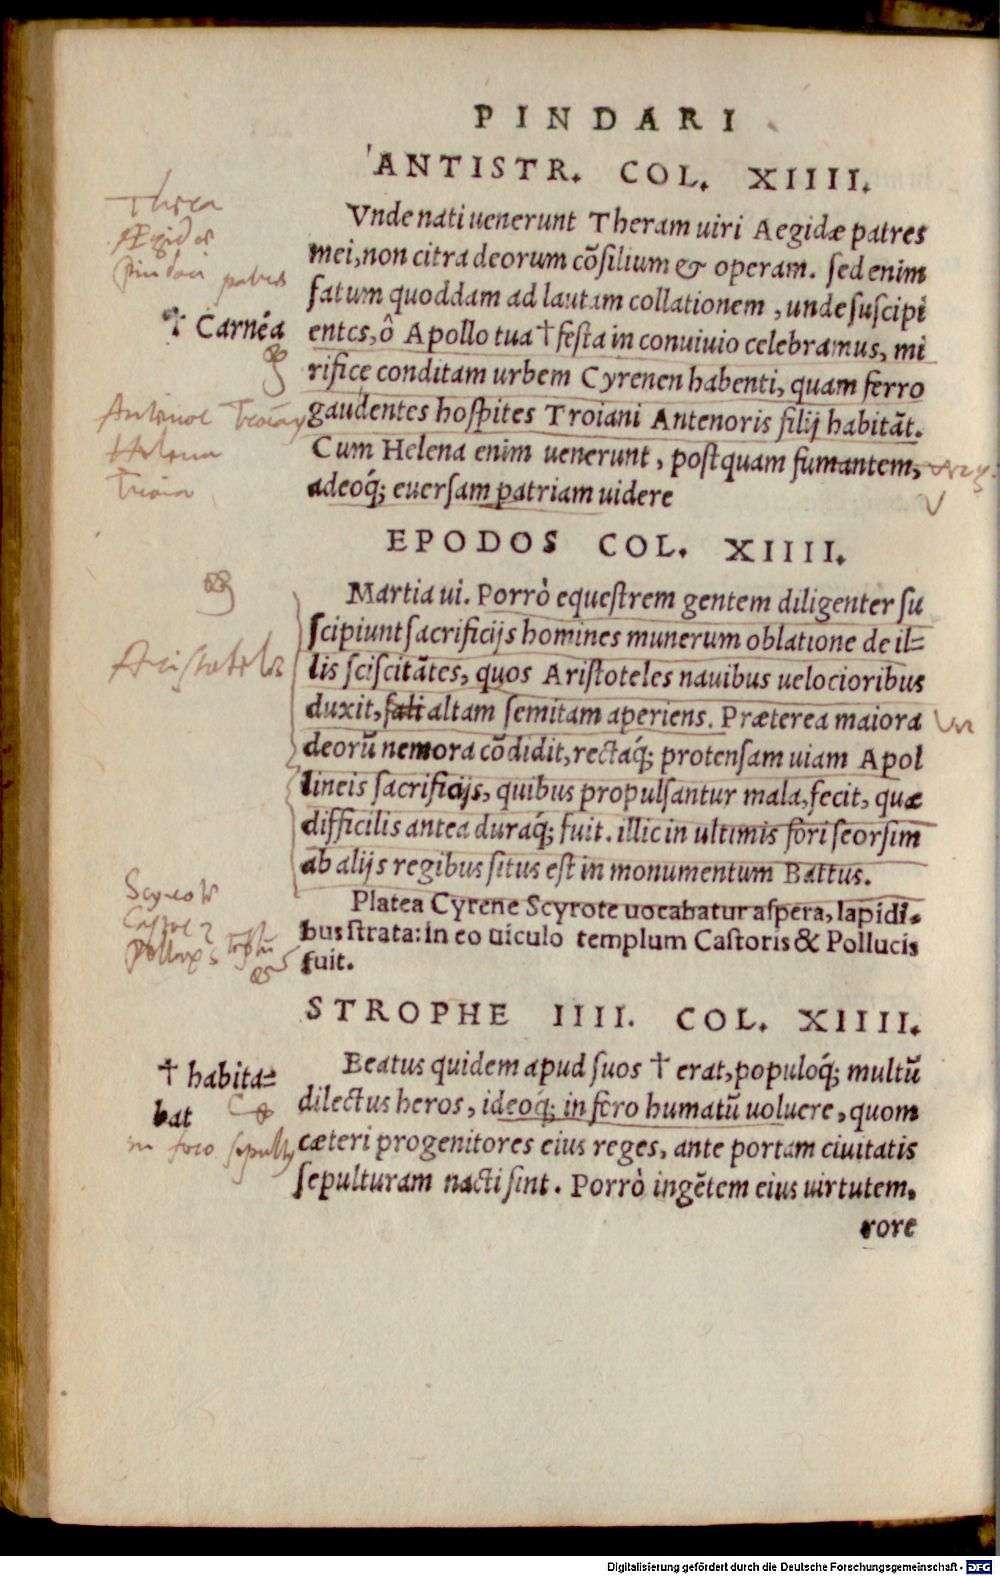 PINDARI
ANTISTR. COL. XIIII.
Thera
Ægidæ
Pindari patres
Vnde nati uenerunt Theram uiri Aegidæ patres
mei, non citra deorum cõsilium & operam. sed enim
fatum quoddam ad lautam collationem, unde suscipi
† Carnéa
entes, ô Apollo tua † festa in conuiuio celebramus, mi
rifice conditam urbem Cyrenen habenti, quam ferro
Antenor Troian
gaudentes hospites Troiani Antenoris filij habitãt.
Helena
Cum Helena enim uenerunt, postquam fumantem,
Troia
adeoq́; euersam patriam uidere
EPODOS COL. XIIII.
Martia ui. Porrò equestrem gentem diligenter su
scipiunt sacrificijs homines munerum oblatione de il=
Aristoteles
lis sciscitãtes, quos Aristoteles nauibus uelocioribus
duxit, sali altam semitam aperiens. Præterea maiora
deorũ nemora cõdidit, rectaq́; protensam uiam Apol
lineis sacrificijs, quibus propulsantur mala, fecit, quæ
difficilis antea duraq́; fuit. illic in ultimis fori seorsim
ab alijs regibus situs est in monumentum Battus.
Castor
Pollux
Platea Cyrene Scyrote uocabatur aspera, lapidi-
bus strata: in eo uiculo templum Castoris & Pollucis
fuit.
STROPHE IIII. COL. XIIII.
† habita=
bat
in foro sepult
Beatus quidem apud suos † erat, populoq́; multũ
dilectus heros, ideoq́; in foro humatũ uoluere, quom
cæteri progenitores eius reges, ante portam ciuitatis
sepulturam nacti sint. Porrò ingẽtem eius uirtutem,
rore
Digitalisierung gefördert durch die Deutsche Forschungsgemeinschaft - DFG